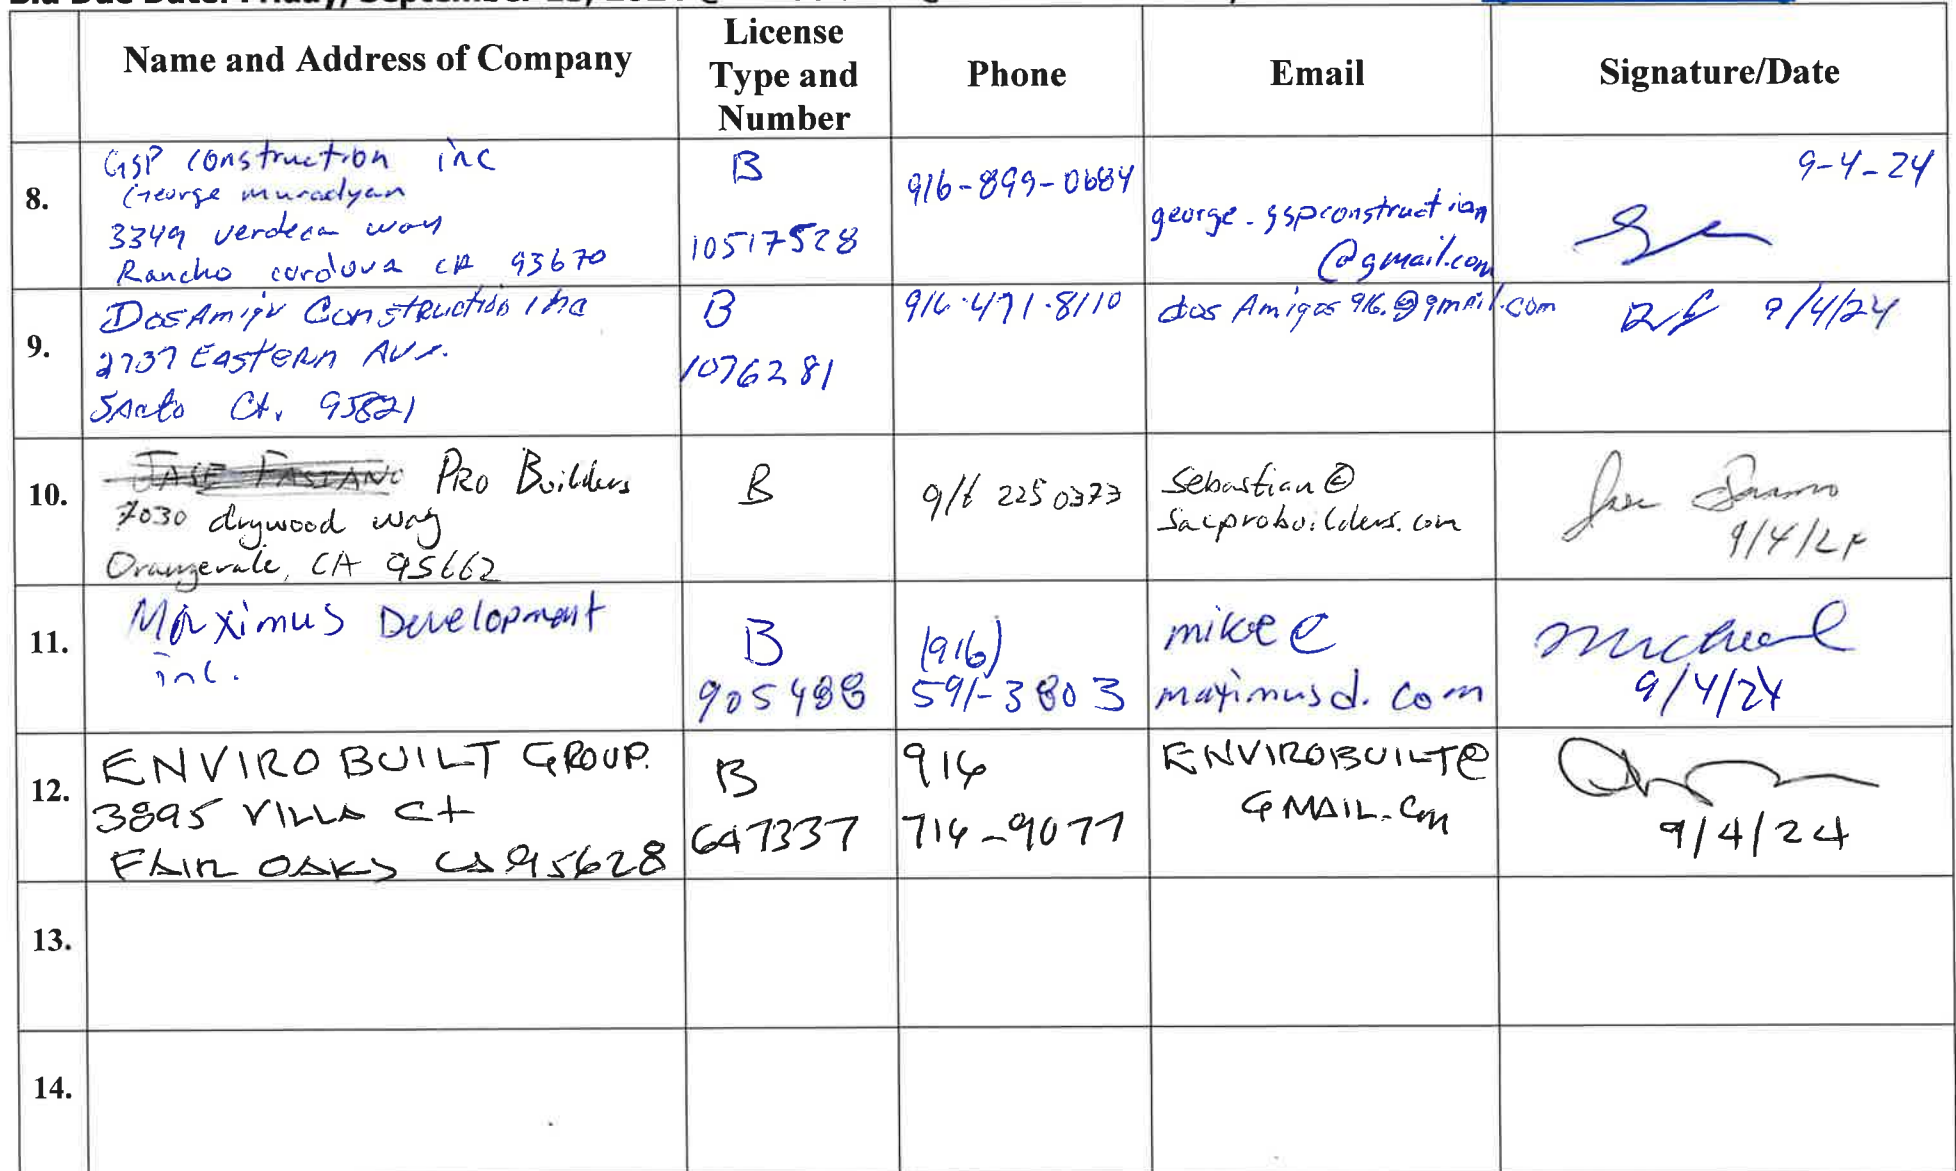 Name and Address of Company
License Type and Number
Phone
Email
Signature/Date
8.
GSP construction inc
George muradyan
3349 verdeca way
Rancho cordova CA 95670
B
10517528
916-899-0684
george.gspconstruction
@gmail.com
9-4-24
9.
DosAmigo Construction Inc
2737 EASTERN Ave.
SActo CA. 95821
B
1076281
916.471.8110
dos Amigos 916.@gmail.com
9/4/24
10.
Pro Builders
7030 drywood way
Orangevale, CA 95662
B
916 225 0373
Sebastian@
sacprobuilders.com
9/4/24
11.
Maximus Development
inc.
B
905488
(916)
591-3803
mike@
maximusd.com
Micheal
9/4/24
12.
ENVIRO BUILT GROUP.
3895 VILLA Ct
FAIR OAKS CA 95628
B
647337
916
714-9077
ENVIROBUILT@
GMAIL.Com
9/4/24
13.
14.